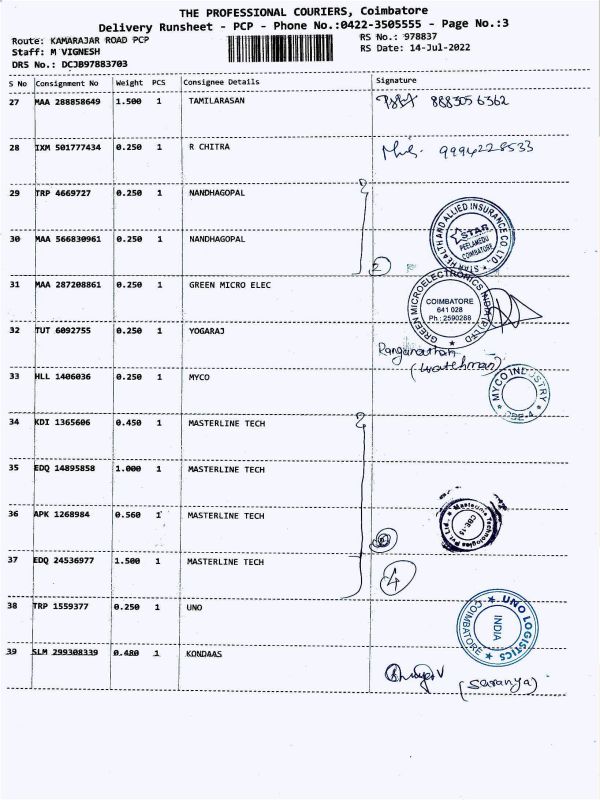 THE PROFESSIONAL COURIERS, Coimbatore
Delivery Runsheet - PCP - Phone No.:0422-3505555 - Page No.:3
Route: KAMARAJAR ROAD PCP RS No.: 978837
Staff: M VIGNESH RS Date: 14-Jul-2022
DRS No.: DCJB97883703
S No Consignment No Weight PCS Consignee Details Signature
27 MAA 288858649 1.500 1 TAMILARASAN 8883056362
28 IXM 501777434 0.250 1 R CHITRA 9994228533
29 TRP 4669727 0.250 1 NANDHAGOPAL
STAR HEALTH AND ALLIED INSURANCE CO. LTD.
STAR
PEELAMEDU
COIMBATORE
30 MAA 566830961 0.250 1 NANDHAGOPAL
2
31 MAA 287208861 0.250 1 GREEN MICRO ELEC
GREEN MICROELECTRONICS INDIA (P) LTD
COIMBATORE
641 028
Ph : 2590288
32 TUT 6092755 0.250 1 YOGARAJ
Ranganathan
(watchman)
33 HLL 1406036 0.250 1 MYCO
MYCO INDUSTRY
CBE-4
34 KDI 1365606 0.450 1 MASTERLINE TECH
35 EDQ 14895858 1.000 1 MASTERLINE TECH
36 APK 1268984 0.560 1 MASTERLINE TECH
Masterline Technologies Pvt Ltd
CBE-15
37 EDQ 24536977 1.500 1 MASTERLINE TECH
4
38 TRP 1559377 0.250 1 UNO
UNO LOGISTICS
COIMBATORE
INDIA
39 SLM 299308339 0.480 1 KONDAAS
(Saranya)